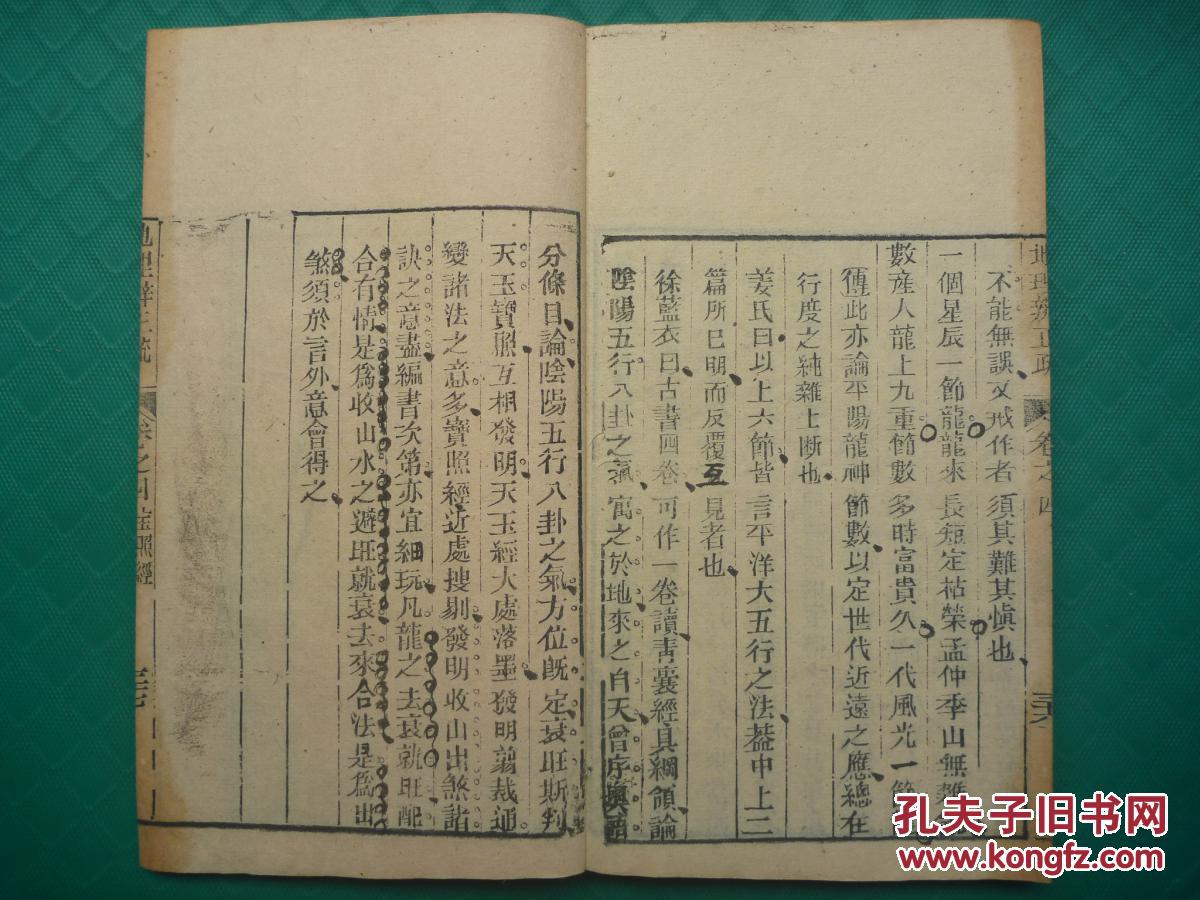 地理辨正疏
卷之四
不能無誤又戒作者須其難其愼也
一個星辰一節龍龍來長短定枯榮孟仲季山無雜
數產人龍上九重節數多時富貴久一代風光一節
此亦論平陽龍神節數以定世代近遠之應總在
行度之純雜上斷也
姜氏曰以上六節皆言平洋大五行之法葢中上二
篇所已明而反覆互見者也
徐藍衣曰古書四卷可作一卷讀靑囊經具綱領論
陰陽五行八卦之氣寓之於地來之自天曾序奧語
分條目論陰陽五行八卦之氣方位旣定衰旺斯判
天玉寶照互相發明天玉經大處落墨發明翦裁通
變諸法之意多寶照經近處搜剔發明收山出煞諸
訣之意盡編書次第亦宜細玩凡龍之去衰就旺配
合有情是爲收山水之避旺就衰去來合法是爲出
煞須於言外意會得之
地理辨正疏
卷之四 寶照經
孔夫子旧书网
www.kongfz.com